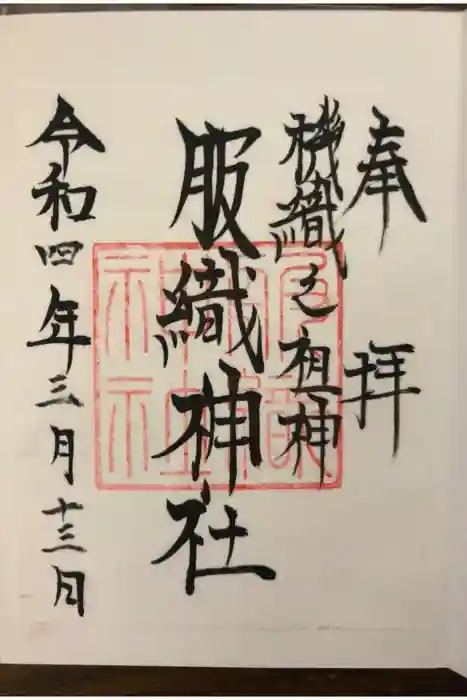 奉拝
機織之祖神
服織神社
令和四年三月十三日